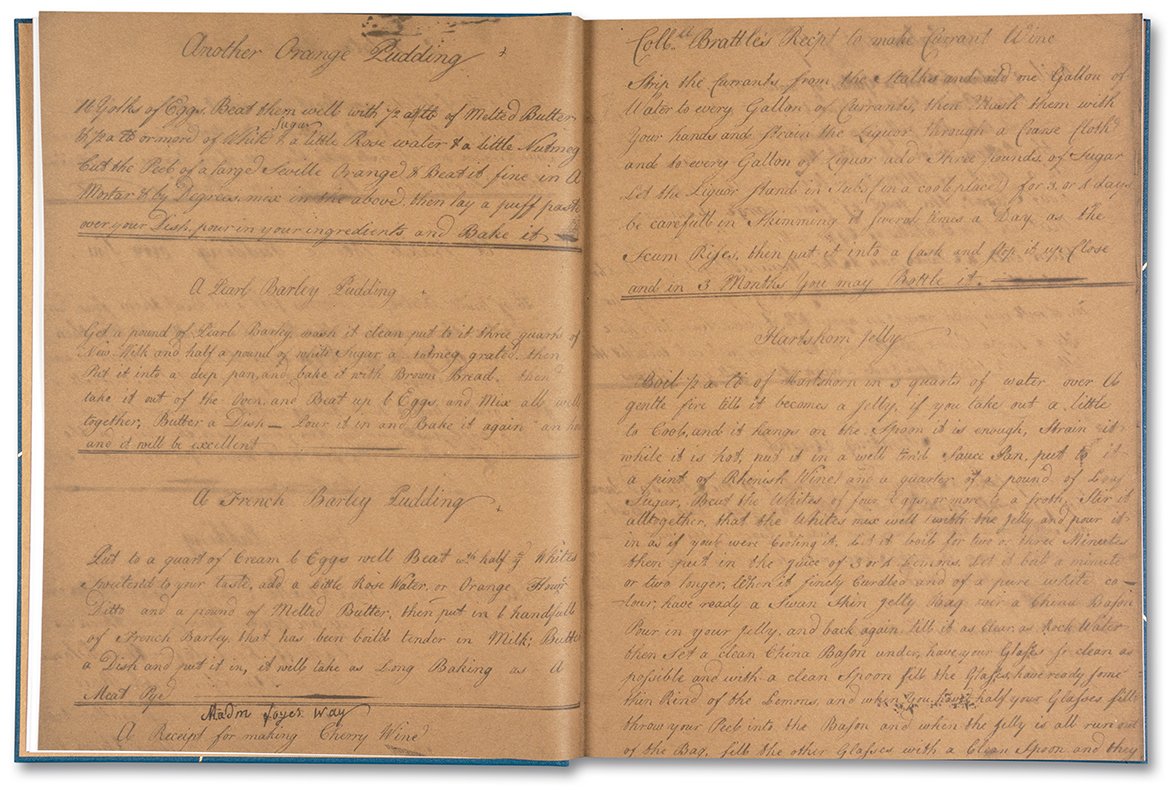 Another Orange Pudding
16 Yolks of Eggs. Beat them well with 1/2 a lb of Melted Butter
1/2 a lb or more of White Sugar & a little Rose water & a little Nutmeg
Cut the Peel of a large Seville Orange & Beat it fine in A
Mortar & by Degrees, mix in the above, then lay a puff paste
over your Dish, pour in your ingredients and Bake it
A Pearl Barley Pudding
Get a pound of Pearl Barley, wash it clean put to it three quarts of
New Milk and half a pound of white Sugar a nutmeg grated, then
Put it into a deep pan, and bake it with Brown Bread, then
take it out of the Oven, and Beat up 6 Eggs, and Mix all well
together, Butter a Dish — Pour it in and Bake it again an ho
and it will be excellent
A French Barley Pudding
Put to a quart of Cream 6 Eggs well Beat wth half ye Whites
Sweetend to your taste, add a Little Rose Water, or Orange Flowr
Ditto and a pound of Melted Butter, then put in 6 handfulls
of French Barley, that has been boild tender in Milk, Butter
a Dish and put it in, it will take as Long Baking as a
Meat Pye
Madm Joyes Way
A Receipt for making Cherry Wine
Coll. Brattle's Recipt to make Currant Wine
Strip the Currants from the Stalks and add one Gallon of
Water to every Gallon of Currants, then Mash them with
Your hands and Strain the Liquor through a Coarse Cloth
and to every Gallon of Liquor add Three pounds of Sugar
Let the Liquor stand in Tubs (in a cool place) for 3 or 4 days
be carefull in Skimming it several times a Day, as the
Scum Rises, then put it into a Cask and stop it up Close
and in 3 Months You may Bottle it.
Hartshorn Jelly
Boil 1/2 a lb of Hartshorn in 3 quarts of water over a
gentle fire till it becomes a Jelly, if you take out a little
to Cool, and it hangs on the Spoon it is enough, Strain it
while it is hot, put it in a well tin'd Sauce Pan, put to it
a pint of Rhenish Wine and a quarter of a pound of Loaf
Sugar, Beat the Whites of four Eggs or more to a froth, Stir it
alltogether, that the Whites mix well with the Jelly, and pour it
in as if you were Cooling it, let it boil for two or three Minutes
then put in the juice of 3 or 4 Lemons, let it boil a minute
or two longer, When it finely Curdled and of a pure white co-
lour, have ready a Swan Skin Jelly Bag over a China Bason
Pour in your Jelly, and back again till it as Clear, as Rock Water
then Set a clean China Bason under, have your Glasses as clean as
possible and with a clean Spoon fill the Glasses, have ready some
thin Rind of the Lemons, and when You have half your Glasses fill
throw your Peel into the Bason and when the Jelly is all run out
of the Bag, fill the other Glasses with a Clean Spoon and they